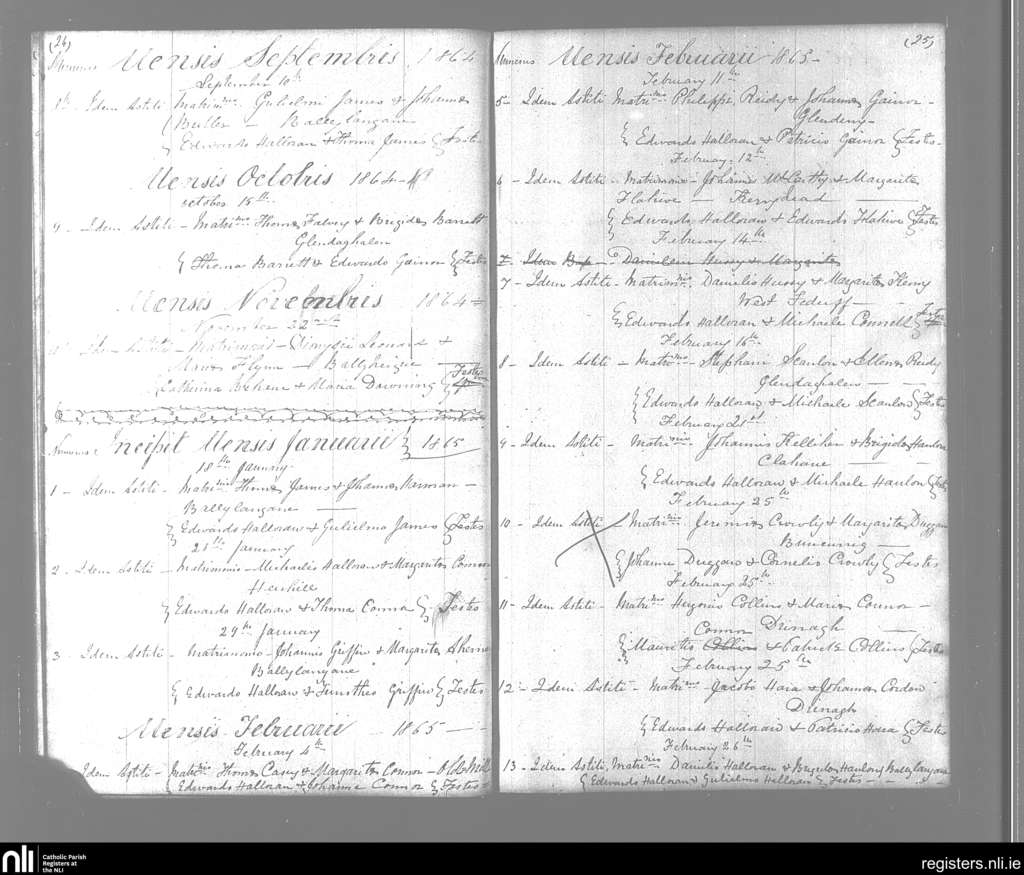 (24)
Numerus Mensis Septembris 1864
September 10th
8th - Idem Astiti Matrimo Gulielmi James & Johanna
Butler - Ballylangane
{ Edwardo Halloran & Thoma James } Testes
Mensis Octobris 1864
October 15th
9 - Idem Astiti - Matrimo Thoma Falvey & Brigida Barrett
Glendaghalen
{ Thoma Barrett & Edwardo Gainor } Testes
Mensis Novembris 1864
November 22
Astiti - Matrimonio - Dionysii Leonard &
Maria Flynn - Ballyheigue
Catherina Behene & Maria Downing { Testes
Numerus Incipit Mensis Januarii } 1865
18th January
1 - Idem Astiti - Matrimnio Thoma James & Johanna
Ballylangane
{ Edwardo Halloran & Gulielmo James { Testes
21st January
2 - Idem Astiti - Matrimonio - Michaelis Halloran & Margarita Connor
{ Edwardo Halloran & Thoma Connor } Testes
29th January
3 - Idem Astiti - Matrimonio - Johannis Griffin & Margarita Ahern
Ballylangane
{ Edwardo Halloran & Timotheo Griffin } Testes
Mensis Februarii 1865
February 4th
Idem Astiti - Matrimnio Thoma Casey & Margarita Connor - Old Mill
{ Edwardo Halloran & Johanne Connor } Testes
(25)
Numerus Mensis Februarii 1865
February 11th
5 - Idem Astiti Matrimno Philippi Reidy & Johanna Gainor -
{ Edwardo Halloran & Patricio Gainor } Testes
February 12th
6 - Idem Astiti - Matrimonio - Johannis McCarthy & Margarita
Flahive - Kerryhead
{ Edwardo Halloran & Edwardo Flahive } Testes
February 14th
7 - Idem Bap - Danielem Hussy & Margarita
7 - Idem Astiti - Matrimnio Danielis Hussy & Margarita Kenny
West
{ Edwardo Halloran & Michaele Connell } Testes
February 16th
8 - Idem Astiti - Matrimnio - Stephani Scanlon & Ellena Reidy
Glendaghalen
{ Edwardo Halloran & Michaele Scanlon } Testes
February 21st
9 - Idem Astiti - Matrimnio Johannis Kelliher & Brigida Hanlon
Clahane
{ Edwardo Halloran & Michaele Hanlon } Testes
February 25th
10 - Idem Astiti - Matrimnio Jeremia Crowly & Margarita Duggan
{ Johanne Duggan & Cornelio Crowly } Testes
February 25th
11 - Idem Astiti - Matrimno Eugenio Collins & Maria Connor -
Connor Drinagh
{ Mauritio Collins & Patricio Collins { Testes
February 25th
12 - Idem Astiti - Matrimno Jacobi Hara & Johanna Cordon
Drinagh
{ Edwardo Halloran & Patricio Hara } Testes
February 26th
13 - Idem Astiti Matrimnio Danielis Halloran & Brigida Hanlon Ballylangane
{ Edwardo Halloran & Gulielmo Halloran } Testes
nli Catholic Parish
Registers at
the NLI
registers.nli.ie